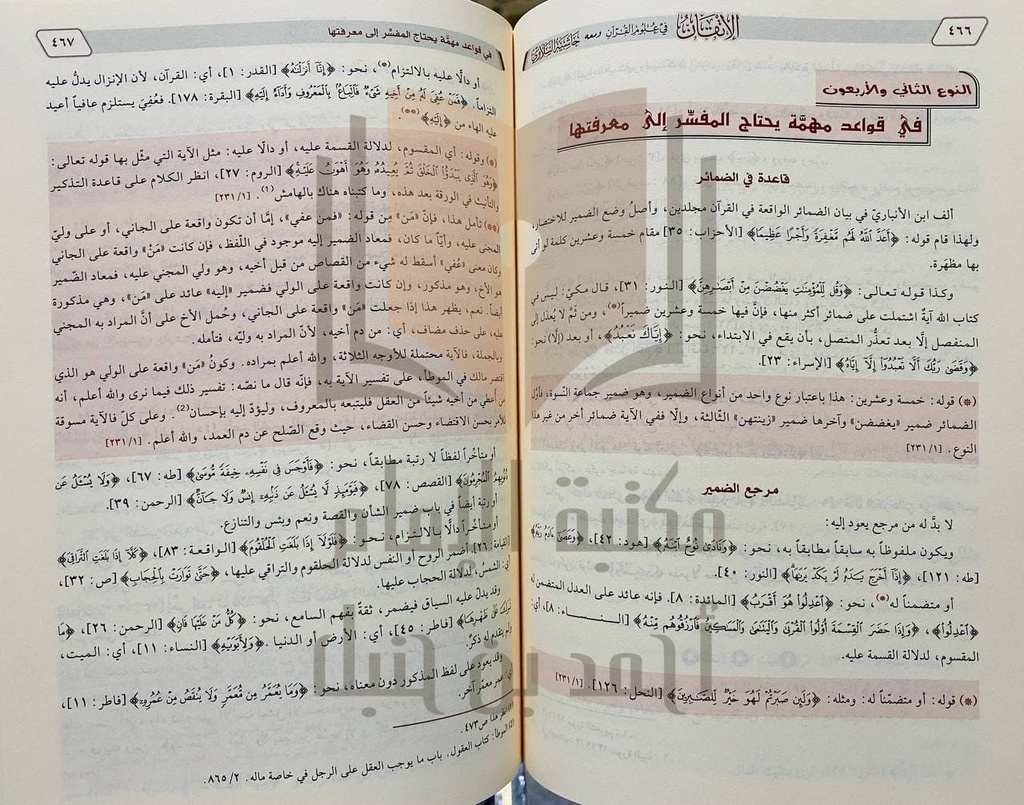 ٤٦٦
الإتقان في علوم القرآن ومعه حاشية السلاوي
النوع الثاني والأربعون
في قواعد مهمّة يحتاج المفسّر إلى معرفتها
قاعدة في الضمائر
ألف ابن الأنباريّ في بيان الضمائر الواقعة في القرآن مجلدين، وأصلُ وضع الضمير للاختصار،
ولهذا قام قوله: ﴿أَعَدَّ اللَّهُ لَهُم مَّغْفِرَةً وَأَجْرًا عَظِيمًا﴾ [الأحزاب: ٣٥] مقام خمسة وعشرين كلمة لو أتى
بها مظهَرة.
وكذا قوله تعالى: ﴿وَقُل لِّلْمُؤْمِنَٰتِ يَغْضُضْنَ مِنْ أَبْصَٰرِهِنَّ﴾ [النور: ٣١]، قال مكيّ: ليس في
كتاب الله آيةٌ اشتملت على ضمائر أكثر منها، فإنَّ فيها خمسة وعشرين ضميراً(*)، ومن ثَمَّ لا يُعدَل إلى
المنفصل إلَّا بعد تعذُّر المتصل، بأن يقع في الابتداء، نحو: ﴿إِيَّاكَ نَعْبُدُ﴾، أو بعد (إلَّا) نحو:
﴿وَقَضَىٰ رَبُّكَ أَلَّا تَعْبُدُوٓا۟ إِلَّآ إِيَّاهُ﴾ [الإسراء: ٢٣].
(*) قوله: خمسة وعشرين: هذا باعتبار نوع واحد من أنواع الضمير، وهو ضمير جماعة النّسوة، فأوَّل
الضمائر ضمير «يغضضن» وآخرها ضمير «زينتهن» الثّالثة، وإلّا ففي الآية ضمائر أخر من غير هذا
النوع. [٢٣١/١]
مرجع الضمير
لا بدَّ له من مرجع يعود إليه:
ويكون ملفوظاً به سابقاً مطابقاً به، نحو: ﴿وَنَادَىٰ نُوحٌ ٱبْنَهُۥ﴾ [هود: ٤٢]، ﴿وَعَصَىٰٓ ءَادَمُ رَبَّهُۥ﴾
[طه: ١٢١]، ﴿إِذَآ أَخْرَجَ يَدَهُۥ لَمْ يَكَدْ يَرَىٰهَا﴾ [النور: ٤٠].
أو متضمناً له(*)، نحو: ﴿ٱعْدِلُوا۟ هُوَ أَقْرَبُ﴾ [المائدة: ٨]. فإنه عائد على العدل المتضمن له
﴿ٱعْدِلُوا۟﴾، ﴿وَإِذَا حَضَرَ ٱلْقِسْمَةَ أُو۟لُوا۟ ٱلْقُرْبَىٰ وَٱلْيَتَٰمَىٰ وَٱلْمَسَٰكِينُ فَٱرْزُقُوهُم مِّنْهُ﴾ [النساء: ٨]، أي:
المقسوم، لدلالة القسمة عليه.
(*) قوله: أو متضمّناً له: ومثله: ﴿وَلَئِن صَبَرْتُمْ لَهُوَ خَيْرٌ لِّلصَّٰبِرِينَ﴾ [النحل: ١٢٦]. [٢٣١/١]
في قواعد مهمّة يحتاج المفسّر إلى معرفتها
٤٦٧
أو دالًا عليه بالالتزام(*)، نحو: ﴿إِنَّآ أَنزَلْنَٰهُ﴾ [القدر: ١]، أي: القرآن، لأن الإنزال يدلّ عليه
التزاماً. ﴿فَمَنْ عُفِىَ لَهُۥ مِنْ أَخِيهِ شَىْءٌ فَٱتِّبَاعٌۢ بِٱلْمَعْرُوفِ وَأَدَآءٌ إِلَيْهِ﴾ [البقرة: ١٧٨]. فعُفِيَ يستلزم عافياً أعيد
عليه الهاء من ﴿إِلَيْهِ﴾(**).
(*) وقوله: أي المقسوم، لدلالة القسمة عليه، أو دالًا عليه: مثل الآية التي مثّل بها قوله تعالى:
﴿وَهُوَ ٱلَّذِى يَبْدَؤُا۟ ٱلْخَلْقَ ثُمَّ يُعِيدُهُۥ وَهُوَ أَهْوَنُ عَلَيْهِ﴾ [الروم: ٢٧]، انظر الكلام على قاعدة التذكير
والتأنيث في الورقة بعد هذه، وما كتبناه هناك بالهامش(1). [٢٣١/١]
(**) تأمل هذا، فإنَّ «مَن» مِن قوله: «فمن عفي»، إمَّا أن تكون واقعة على الجاني، أو على وليّ
المجنى عليه، وأيّاً ما كان، فمعاد الضمير إليه موجود في اللّفظ، فإن كانت «مَنْ» واقعة على الجاني
وكان معنى «عُفي» أسقط له شيء من القصاص من قبل أخيه، وهو ولي المجني عليه، فمعاد الضّمير
هو الأخ، وهو مذكور، وإن كانت واقعة على الولي فضمير «إليه» عائد على «مَن»، وهي مذكورة
أيضاً. نعم، يظهر هذا إذا جعلت «مَن» واقعة على الجاني، وحُمل الأخ على أنَّ المراد به المجني
عليه، على حذف مضاف، أي: من دم أخيه، لأنّ المراد به وليّه، فتأمله.
وبالجملة، فالآية محتملة للأوجه الثلاثة، والله أعلم بمراده. وكونُ «مَن» واقعة على الولي هو الذي
اقتصر مالك في الموطأ، على تفسير الآية به، فإنَّه قال ما نصّه: تفسير ذلك فيما نرى والله أعلم، أنه
من أعطي من أخيه شيئاً من العقل فليتبعه بالمعروف، وليؤدّ إليه بإحسان(2). وعلى كلّ فالآية مسوقة
للأمر بحسن الاقتضاء وحسن القضاء، حيث وقع الصّلح عن دم العمد، والله أعلم. [٢٣١/١]
أو متأخراً لفظاً لا رتبة مطابقاً، نحو: ﴿فَأَوْجَسَ فِى نَفْسِهِۦ خِيفَةً مُّوسَىٰ﴾ [طه: ٦٧]، ﴿وَلَا يُسْـَٔلُ عَن
ذُنُوبِهِمُ ٱلْمُجْرِمُونَ﴾ [القصص: ٧٨]، ﴿فَيَوْمَئِذٍ لَّا يُسْـَٔلُ عَن ذَنۢبِهِۦٓ إِنسٌ وَلَا جَآنٌّ﴾ [الرحمن: ٣٩].
أو رتبة أيضاً في باب ضمير الشأن والقصة ونعم وبئس والتنازع.
أو متأخراً دالًّا بالالتزام، نحو: ﴿فَلَوْلَآ إِذَا بَلَغَتِ ٱلْحُلْقُومَ﴾ [الواقعة: ٨٣]، ﴿كَلَّآ إِذَا بَلَغَتِ ٱلتَّرَاقِىَ﴾
[القيامة: ٢٦] أضمر الروح أو النفس لدلالة الحلقوم والتراقي عليها، ﴿حَتَّىٰ تَوَارَتْ بِٱلْحِجَابِ﴾ [ص: ٣٢]،
أي: الشمس، لدلالة الحجاب عليها.
وقد يدلّ عليه السياق فيضمر، ثقةً بفهم السامع، نحو: ﴿كُلُّ مَنْ عَلَيْهَا فَانٍ﴾ [الرحمن: ٢٦]، ﴿مَا
تَرَكَ عَلَىٰ ظَهْرِهَا﴾ [فاطر: ٤٥]، أي: الأرض أو الدنيا. ﴿وَلِأَبَوَيْهِ﴾ [النساء: ١١]، أي: الميت،
ولم يتقدم له ذكر.
وقد يعود على لفظ المذكور دون معناه، نحو: ﴿وَمَا يُعَمَّرُ مِن مُّعَمَّرٍ وَلَا يُنقَصُ مِنْ عُمُرِهِۦٓ﴾ [فاطر: ١١]،
أي: عمر معمّر آخر.
(1) انظر هذا ص٤٧٣.
(2) الموطأ: كتاب العقول. باب ما يوجب العقل على الرجل في خاصة ماله. ٢/ ٨٦٥.
مكتبة الإمام
أحمد بن حنبل